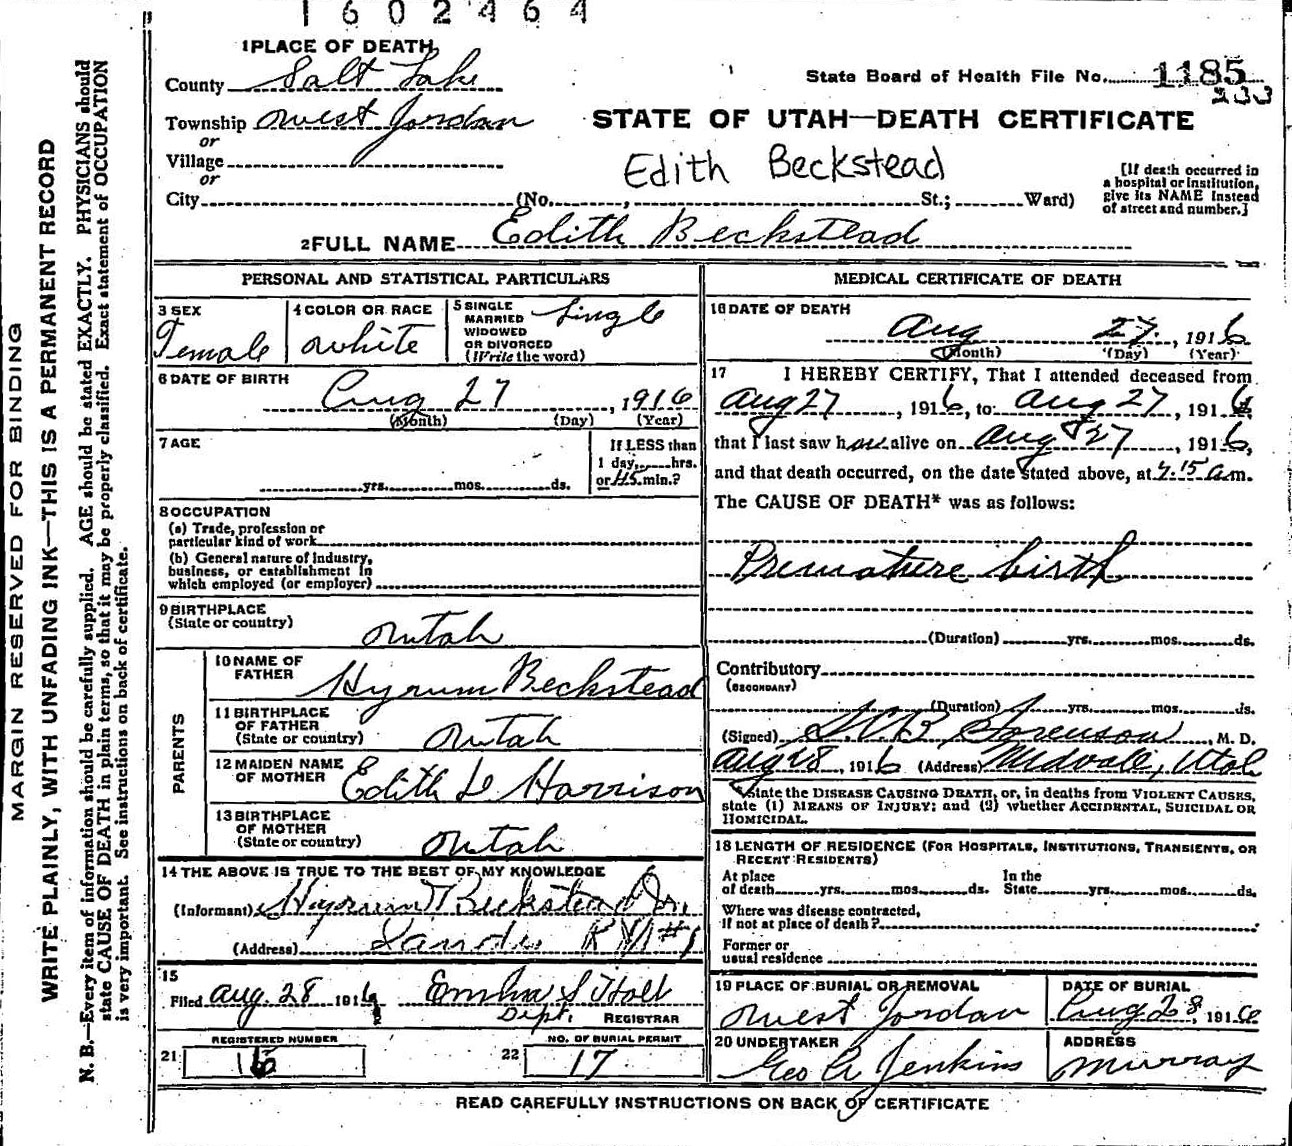 1602464
1 PLACE OF DEATH
County Salt Lake
State Board of Health File No. 1185
233
Township West Jordan
STATE OF UTAH—DEATH CERTIFICATE
or
Village
Edith Beckstead
or
City (No. , St.; Ward)
[If death occurred in
a hospital or institution,
give its NAME instead
of street and number.]
2 FULL NAME Edith Beckstead
PERSONAL AND STATISTICAL PARTICULARS
3 SEX
Female
4 COLOR OR RACE
White
5 SINGLE
MARRIED
WIDOWED
OR DIVORCED
(Write the word)
Single
6 DATE OF BIRTH
Aug 27, 1916
(Month) (Day) (Year)
7 AGE
yrs. mos. ds.
If LESS than
1 day, hrs.
or 45 min.?
8 OCCUPATION
(a) Trade, profession or
particular kind of work
(b) General nature of industry,
business, or establishment in
which employed (or employer)
9 BIRTHPLACE
(State or country)
Utah
PARENTS
10 NAME OF
FATHER
Hyrum Beckstead
11 BIRTHPLACE
OF FATHER
(State or country)
Utah
12 MAIDEN NAME
OF MOTHER
Edith L Harrison
13 BIRTHPLACE
OF MOTHER
(State or country)
Utah
14 THE ABOVE IS TRUE TO THE BEST OF MY KNOWLEDGE
(Informant) Hyrum T Beckstead Jr.
(Address) Sandy #1
15
Filed Aug. 28 1916 Holt
Dept. REGISTRAR
21 REGISTERED NUMBER
16
22 NO. OF BURIAL PERMIT
17
MEDICAL CERTIFICATE OF DEATH
16 DATE OF DEATH
Aug 27, 1916
(Month) (Day) (Year)
17 I HEREBY CERTIFY, That I attended deceased from
Aug 27, 1916, to Aug 27, 1916
that I last saw h alive on Aug 27, 1916,
and that death occurred, on the date stated above, at 7.15 a.m.
The CAUSE OF DEATH* was as follows:
Premature birth
(Duration) yrs. mos. ds.
Contributory
(SECONDARY)
(Duration) yrs. mos. ds.
(Signed) Sorenson, M. D.
Aug 28, 1916 (Address) Midvale, Utah
*State the DISEASE CAUSING DEATH, or, in deaths from VIOLENT CAUSES,
state (1) MEANS OF INJURY; and (2) whether ACCIDENTAL, SUICIDAL OR
HOMICIDAL.
18 LENGTH OF RESIDENCE (FOR HOSPITALS, INSTITUTIONS, TRANSIENTS, OR
RECENT RESIDENTS)
At place In the
of death yrs. mos. ds. State yrs. mos. ds.
Where was disease contracted,
if not at place of death?
Former or
usual residence
19 PLACE OF BURIAL OR REMOVAL
West Jordan
DATE OF BURIAL
Aug 28, 1916
20 UNDERTAKER
Geo A Jenkins
ADDRESS
Murray
READ CAREFULLY INSTRUCTIONS ON BACK OF CERTIFICATE
MARGIN RESERVED FOR BINDING
WRITE PLAINLY, WITH UNFADING INK—THIS IS A PERMANENT RECORD
N. B.—Every item of information should be carefully supplied. AGE should be stated EXACTLY. PHYSICIANS should
state CAUSE OF DEATH in plain terms, so that it may be properly classified. Exact statement of OCCUPATION
is very important. See instructions on back of certificate.